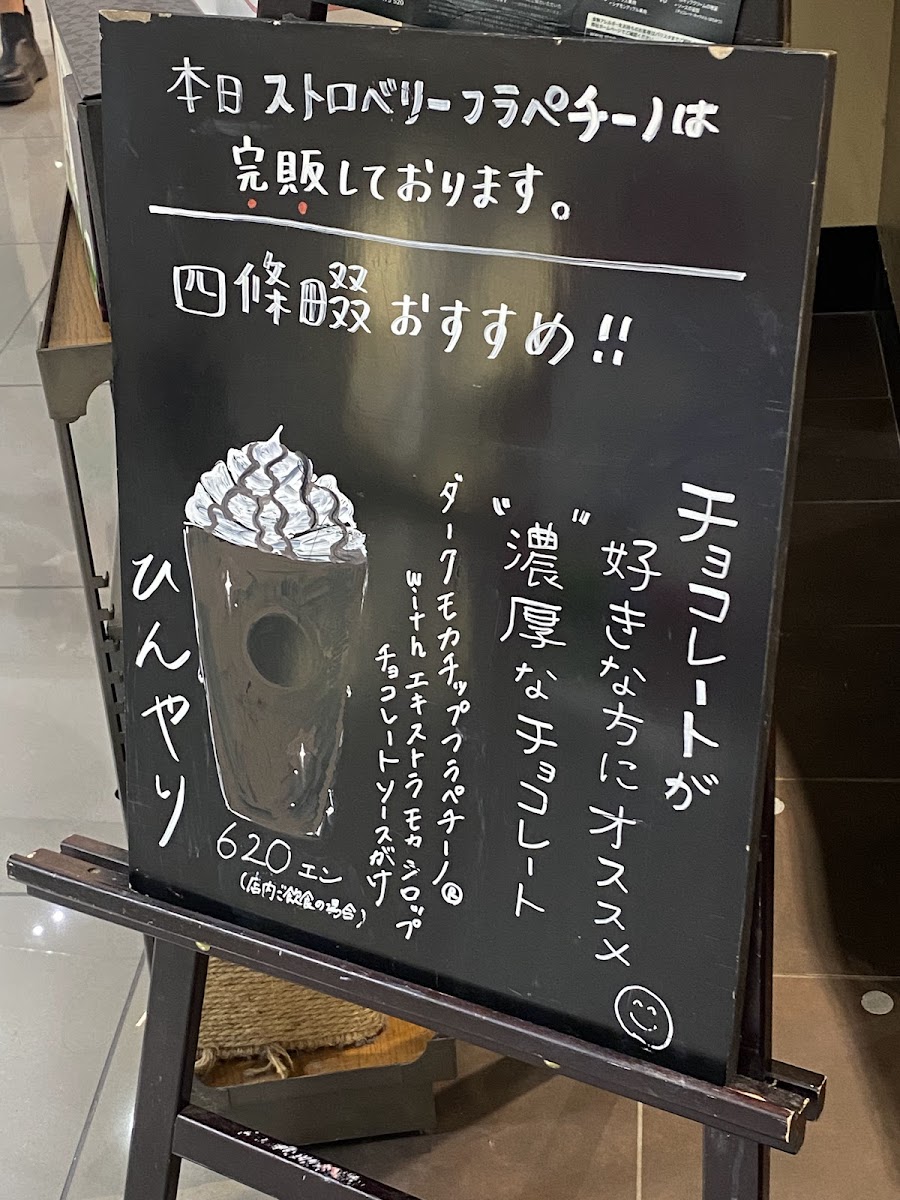 本日 ストロベリーフラペチーノは
完販しております。
四條畷 おすすめ!!
チョコレートが
好きな方にオススメ
"濃厚なチョコレート"
ダークモカチップフラペチーノ®
with エキストラ モカ シロップ
チョコレートソースがけ
ひんやり
620エン
(店内ご飲食の場合)